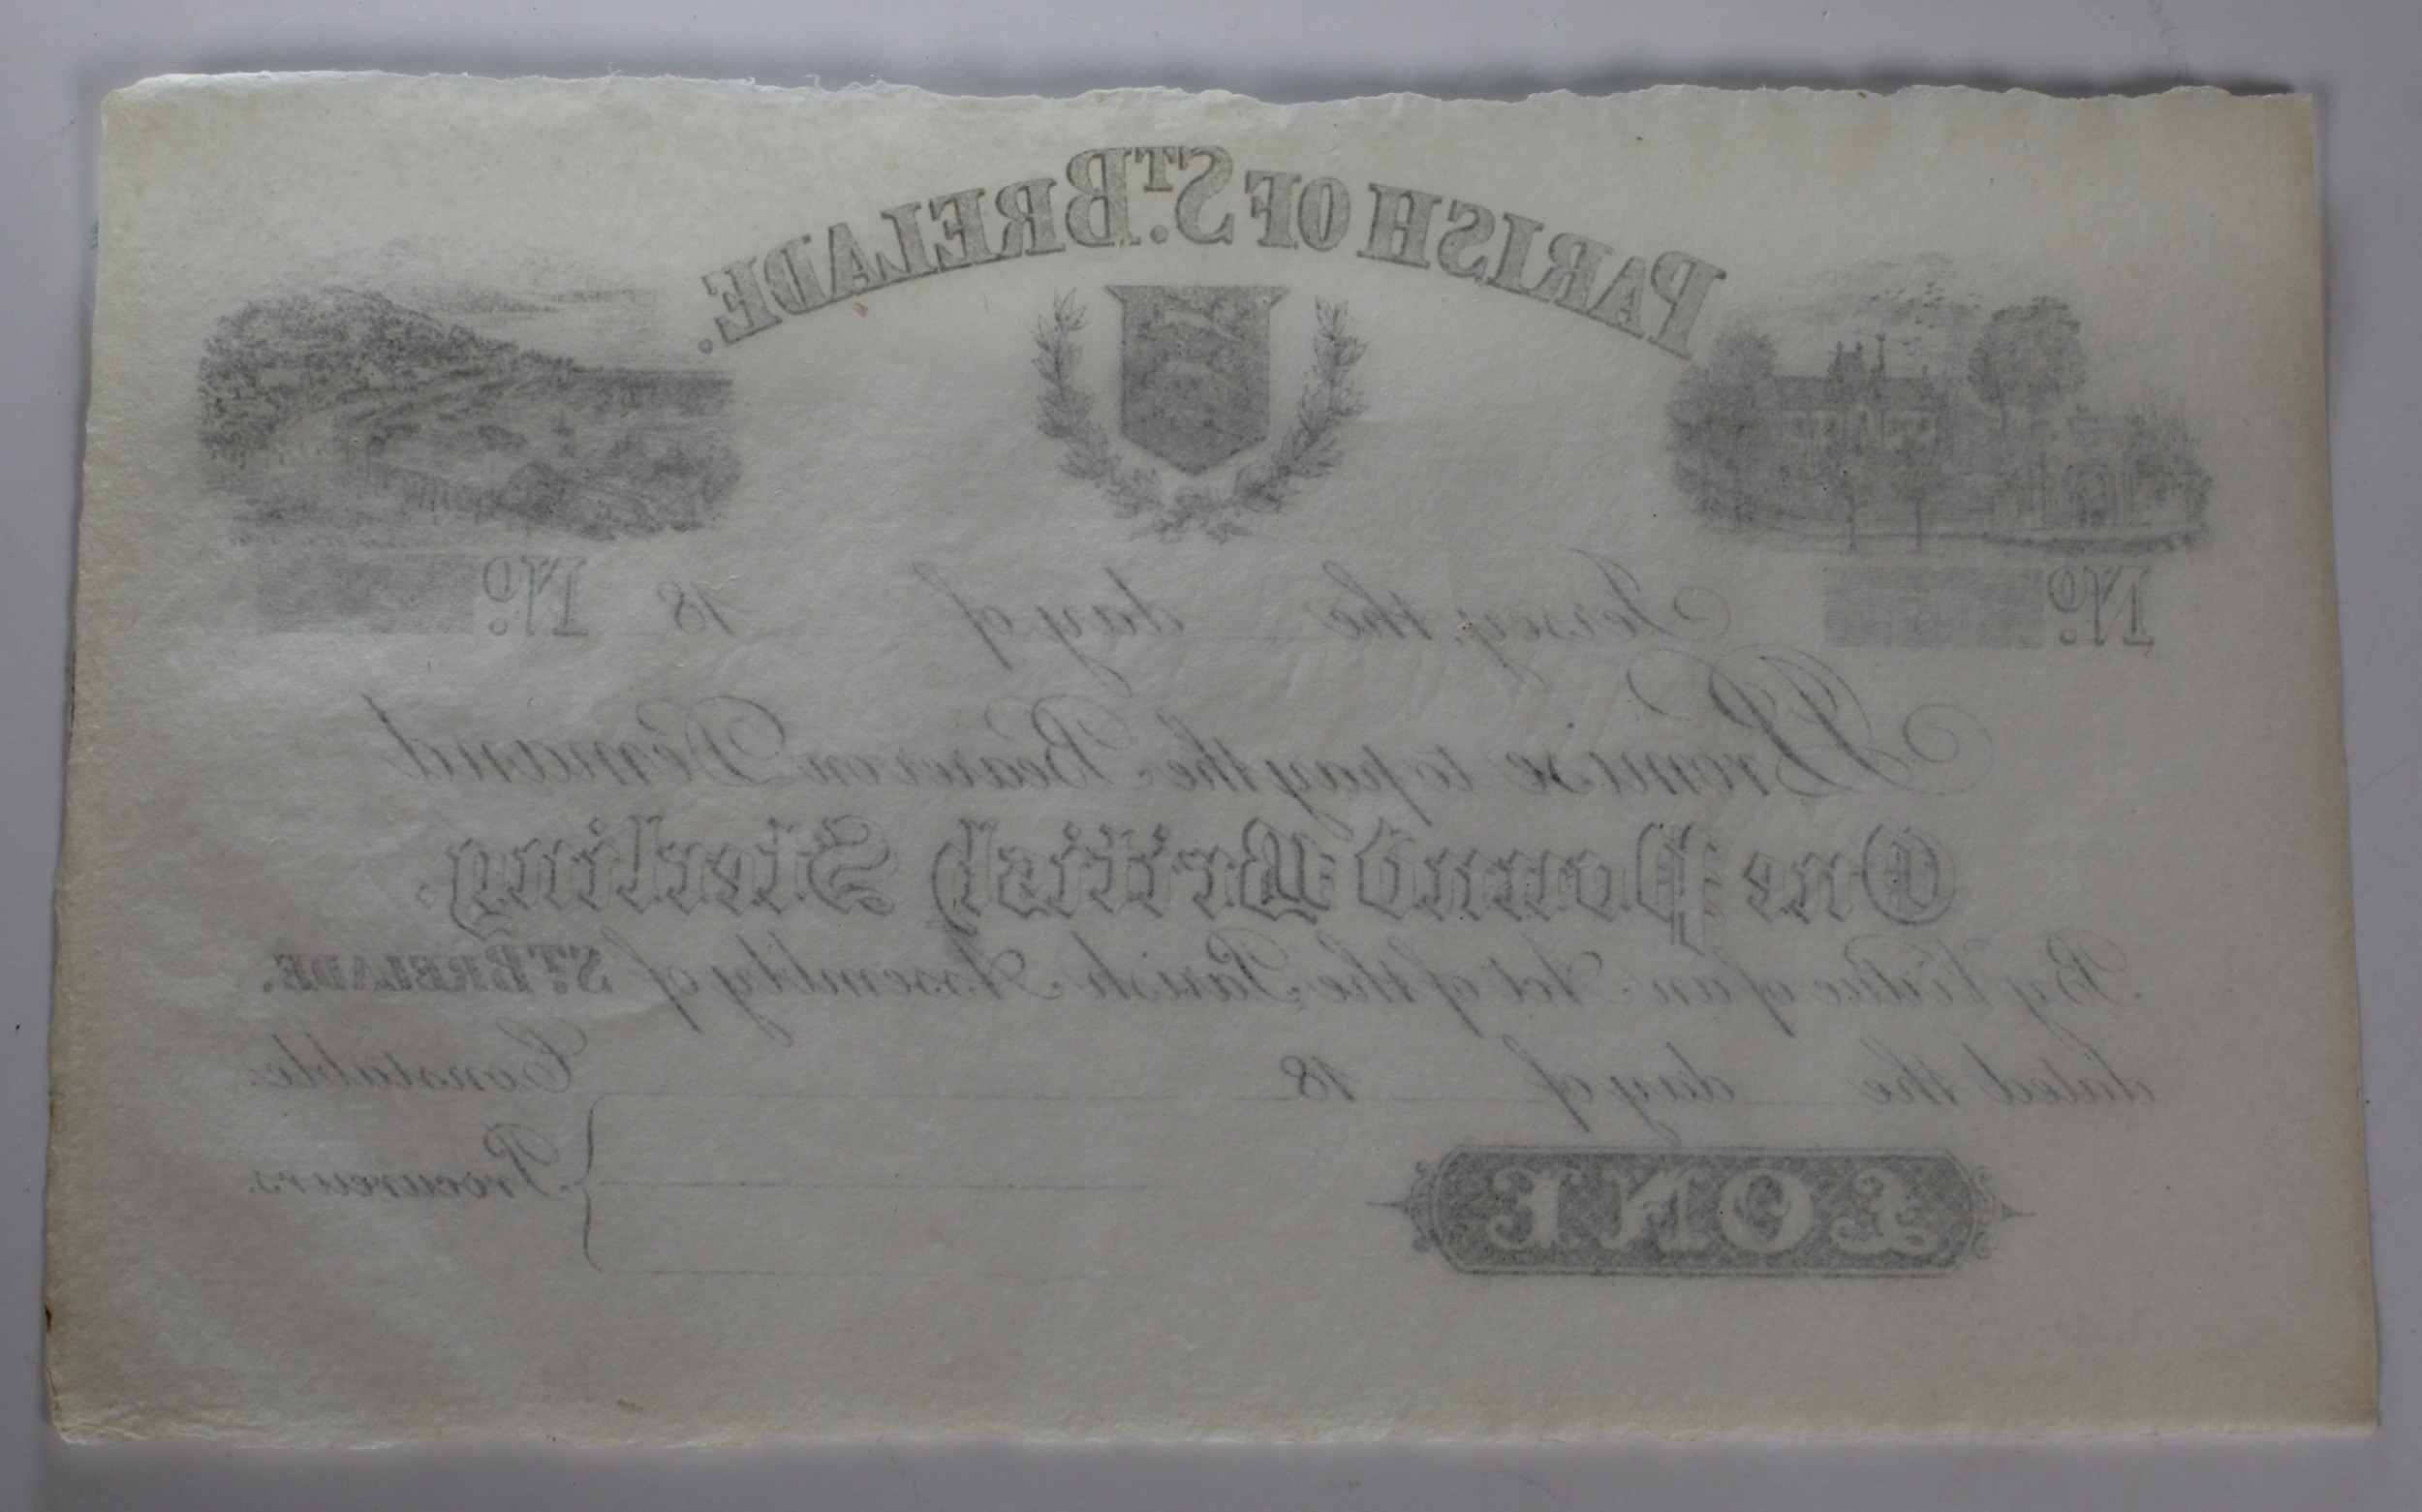 PARISH OF ST. BRELADE.
No. Jersey, the day of 18 No.
I Promise to pay the Bearer on Demand
One Pound British Sterling.
By Virtue of an Act of the Parish Assembly of ST. BRELADE.
dated the day of 18 Constable.
£ONE Procureurs.